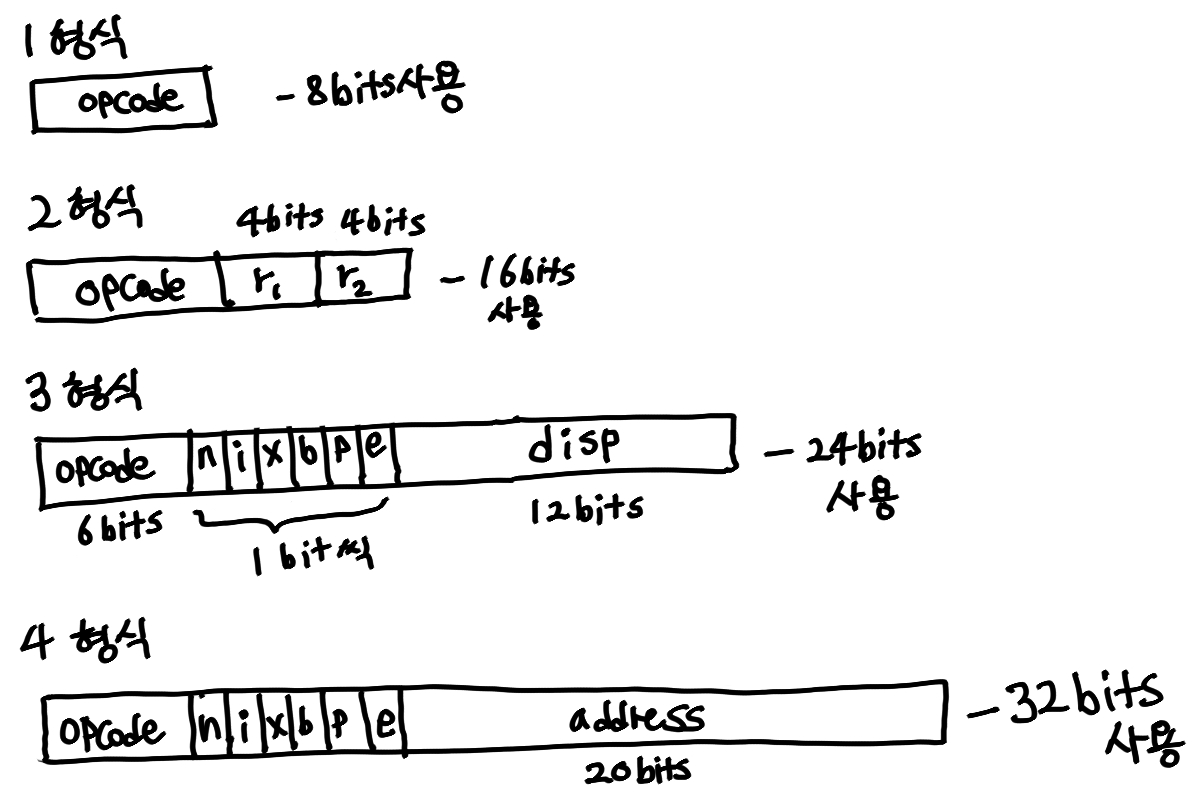 1 형식
opcode - 8bits사용
2 형식
4bits 4bits
opcode r₁ r₂ - 16bits
사용
3 형식
opcode n i x b p e disp - 24bits
사용
6bits 12bits
1 bit씩
4 형식
opcode n i x b p e address - 32bits
사용
20bits